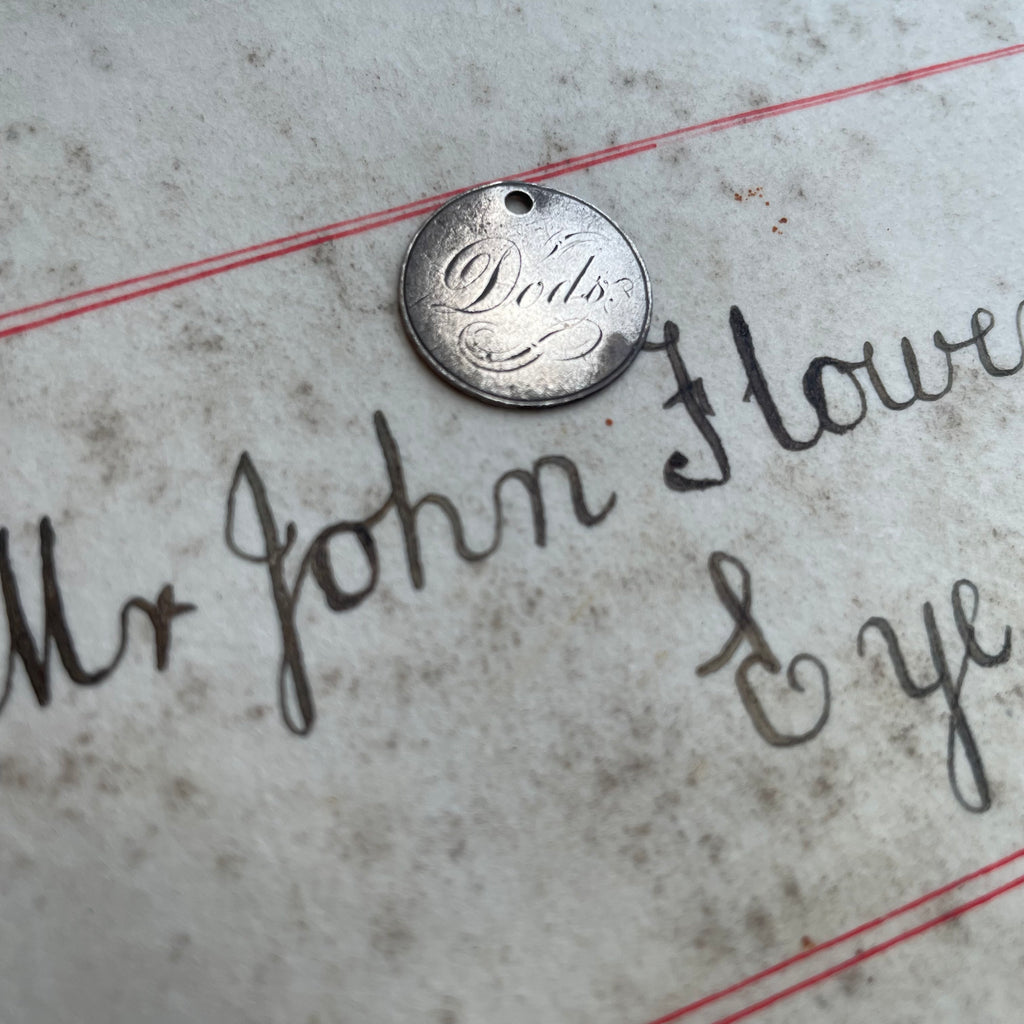 Dods
Mr John Flowe
Eye